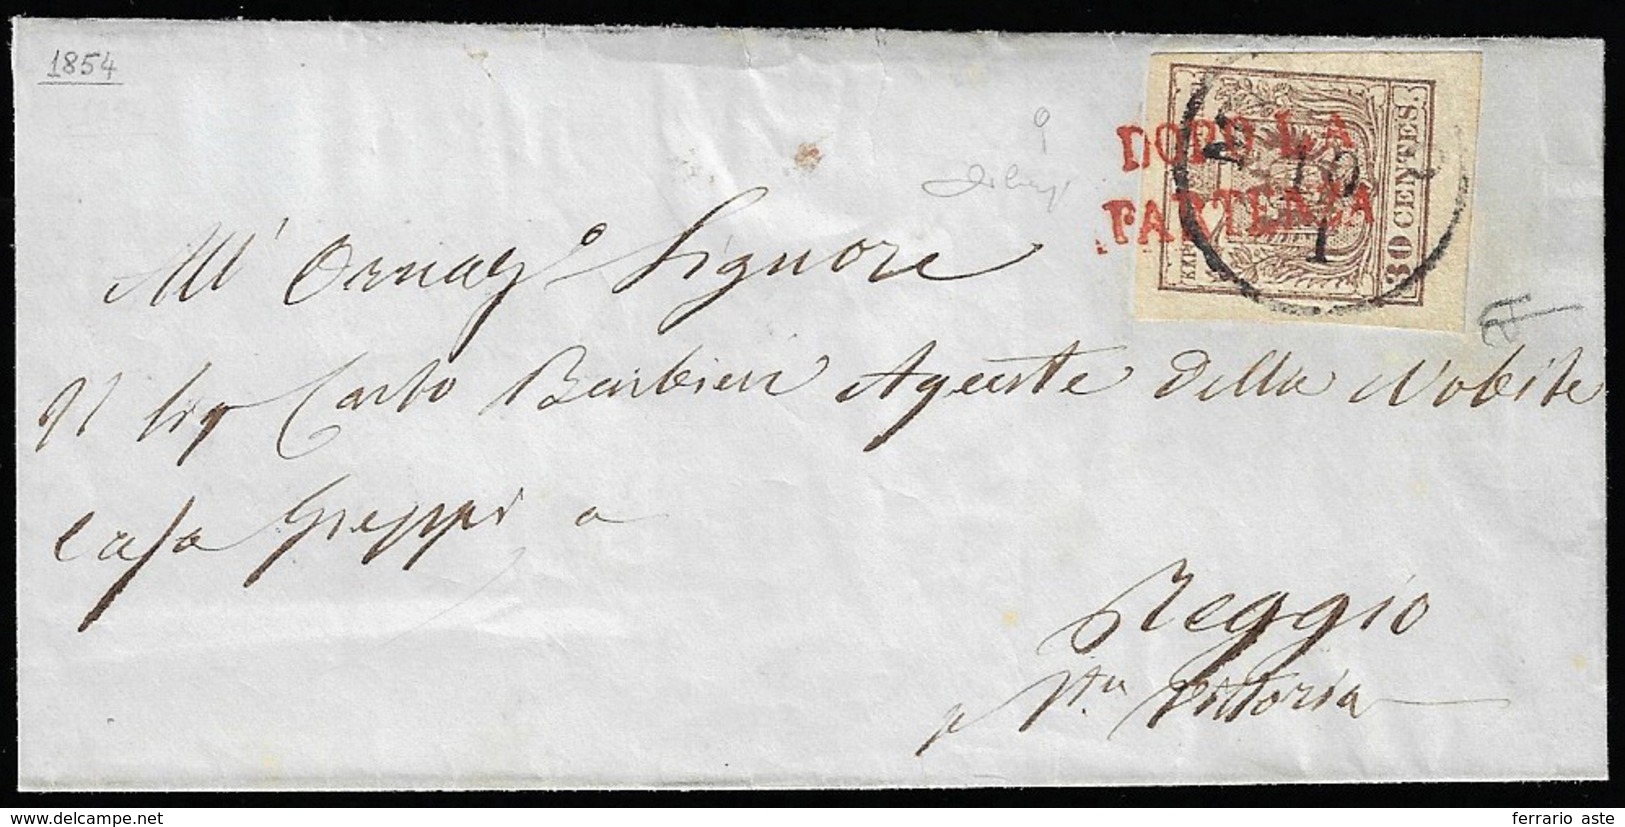 1854
DOPO LA
PARTENZA
19
1
30 CENTES.
All' Ornat.o Signore
Il Sig Carlo Barbieri Agente della Nobile
Casa Greppi a
Reggio
p Sta Vittoria
www.delcampe.net
ferrario aste